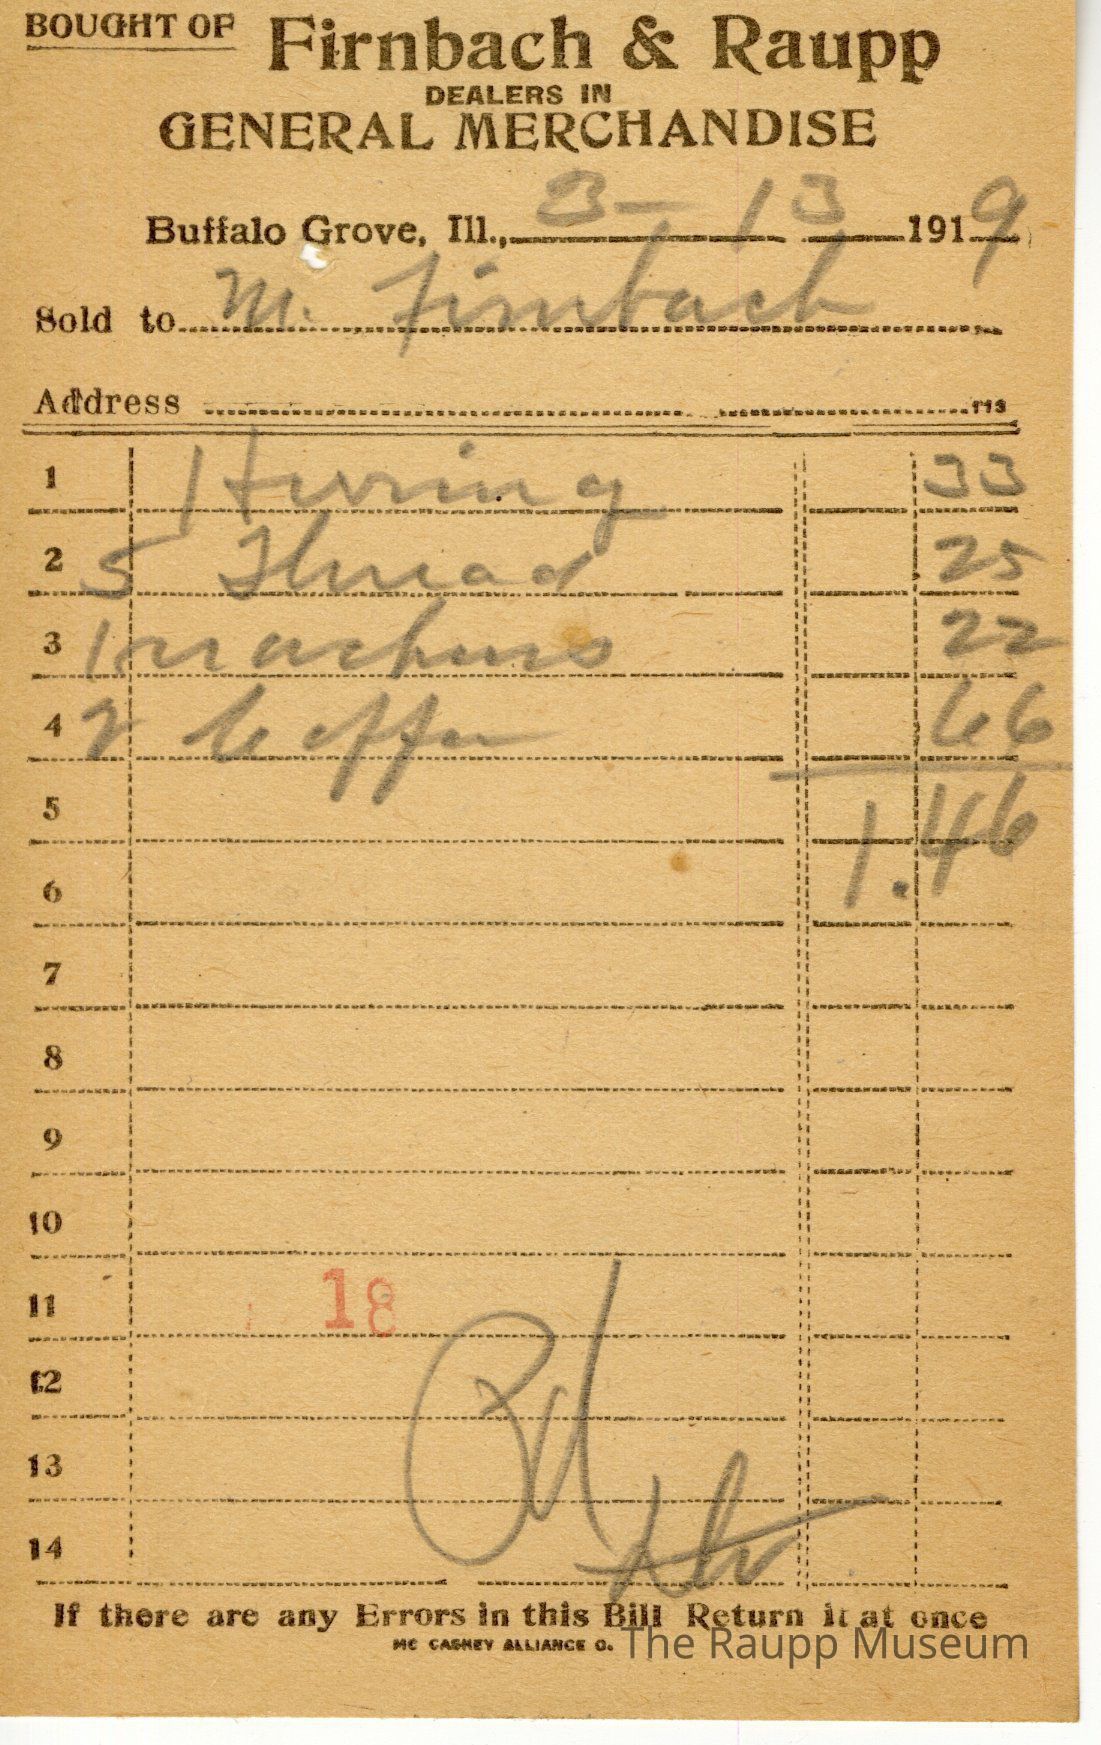 BOUGHT OF Firnbach & Raupp
DEALERS IN
GENERAL MERCHANDISE
Buffalo Grove, Ill., 3 - 13 1919
Sold to M. Firnbach
Address
1 Herring 33
2 5 Thread 25
3 1 22
4 2 Coffee 66
5 1.46
6
7
8
9
10
11 18
12
13 Pd
14
If there are any Errors in this Bill Return it at once
MC CASKEY ALLIANCE O.
The Raupp Museum